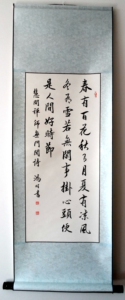 春有百花秋有月夏有凉風
冬有雪若無閒事掛心頭便
是人間好時節
慧開禅師無門関诗